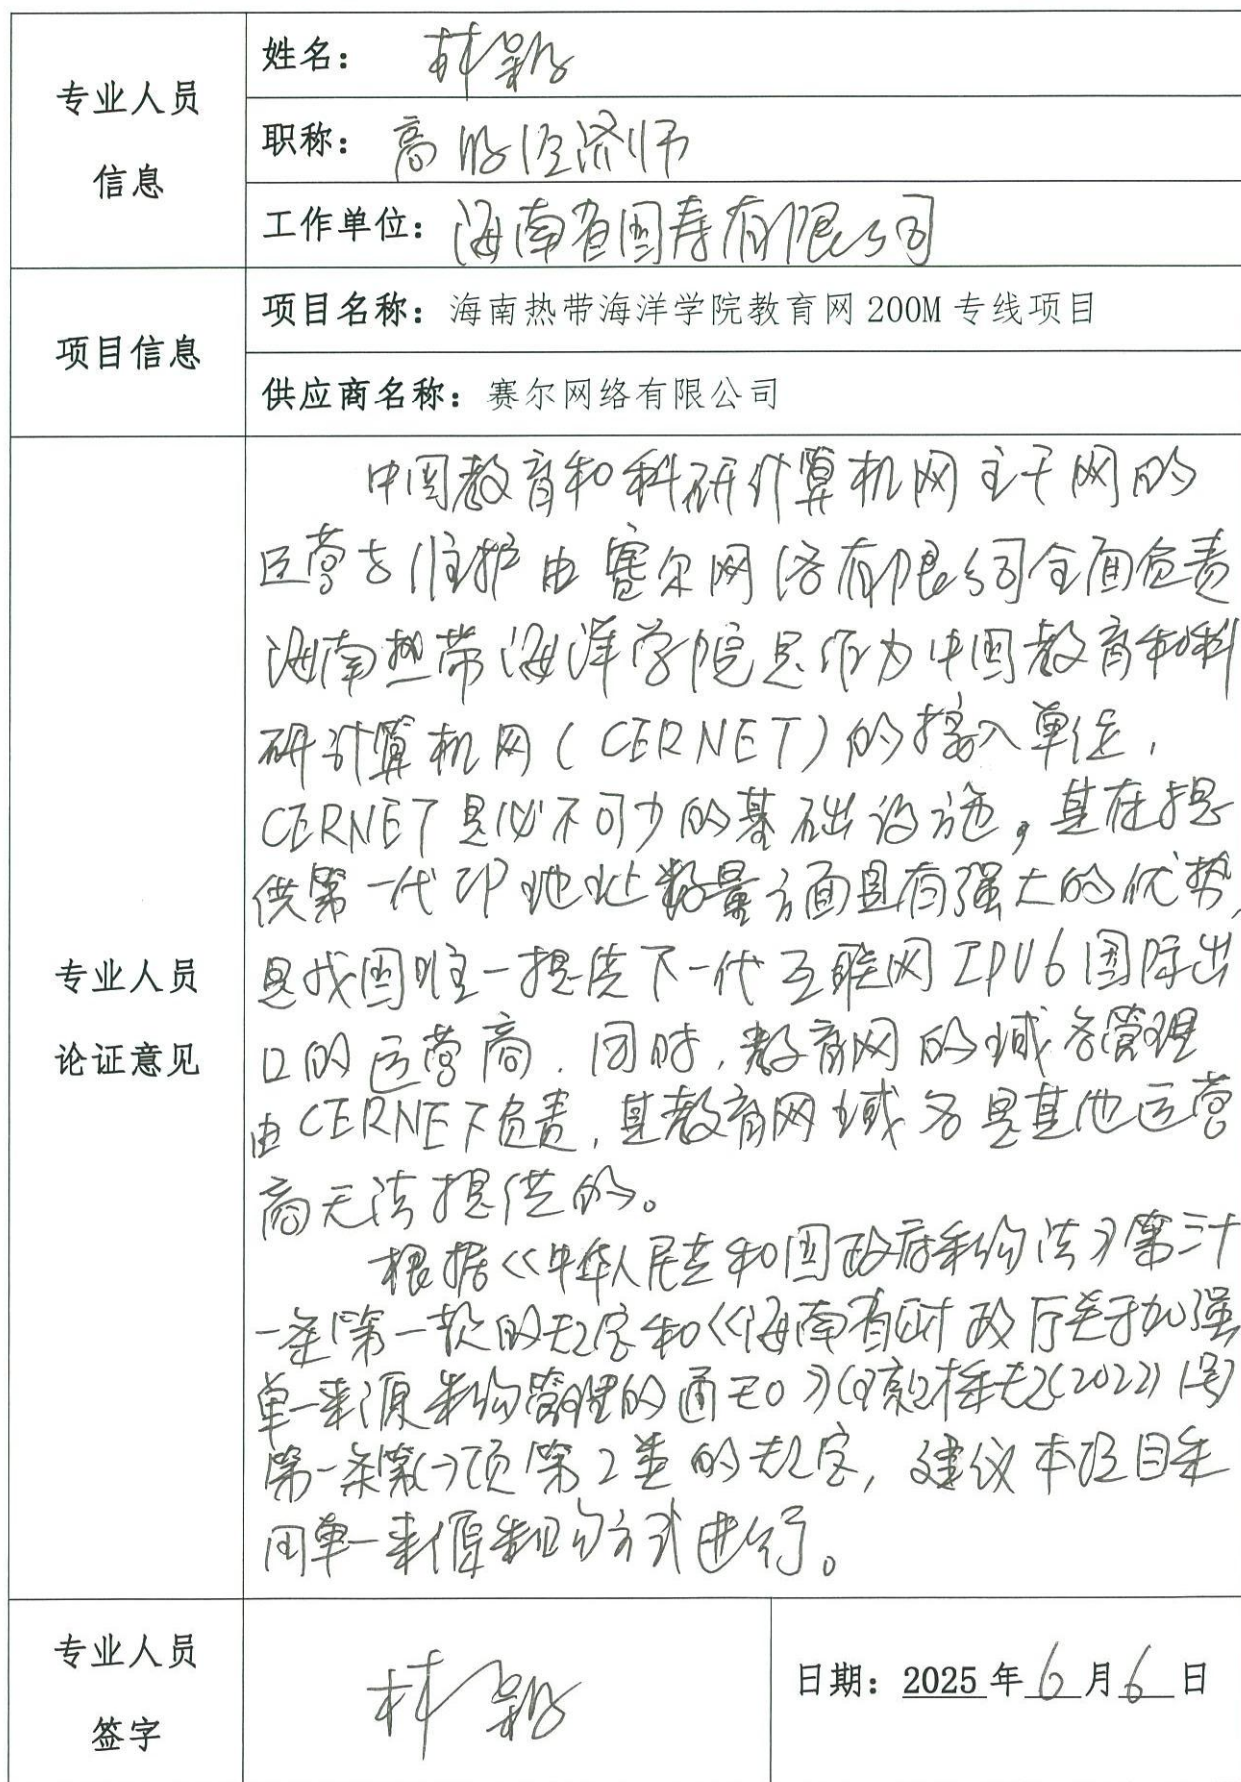 专业人员
信息
姓名：林
职称：高级经济师
工作单位：海南省图寿有限公司
项目信息
项目名称：海南热带海洋学院教育网 200M 专线项目
供应商名称：赛尔网络有限公司
专业人员
论证意见
中国教育和科研计算机网主干网的
运营与维护由赛尔网络有限公司全面负责
海南热带海洋学院是作为中国教育和科
研计算机网(CERNET)的接入单位，
CERNET是必不可少的基础设施，其在提
供第一代IP地址数量方面具有强大的优势，
是我国唯一提供下一代互联网IPV6国际出
口的运营商．同时，教育网的域名管理
由CERNET负责，其教育网域名是其他运营
商无法提供的。
根据《中华人民共和国政府采购法》第三十
一条第一款的规定和《海南省财政厅关于加强
单一来源采购管理的通知》(琼财采规(2022)1号)
第一条第(一)项第2类的规定，建议本项目采
用单一来源采购方式进行。
专业人员
签字
林
日期：2025年6月6日